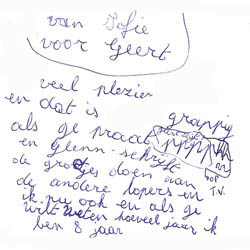 van Sofie
voor Geert
veel plezier
en dat is grappig
als ge praat
en Glenn-schrijft
de grotjes doen van
de andere lopers en T.V.
ik nu ook en als ge
wilt weten hoeveel jaar ik
ben 8 jaar